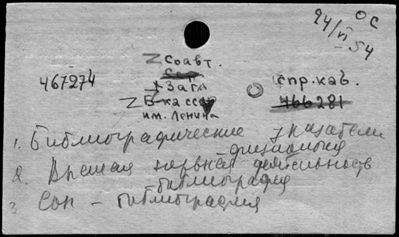 ОС
24/VI
-54
Z Соавт.
467274
х Загл.
спр. каб.
Z В-ка ССС
466281
им. Ленина
1. Библиографические указатели
физиология
2. Высшая нервная деятельность
библиография
3. Сон - библиография